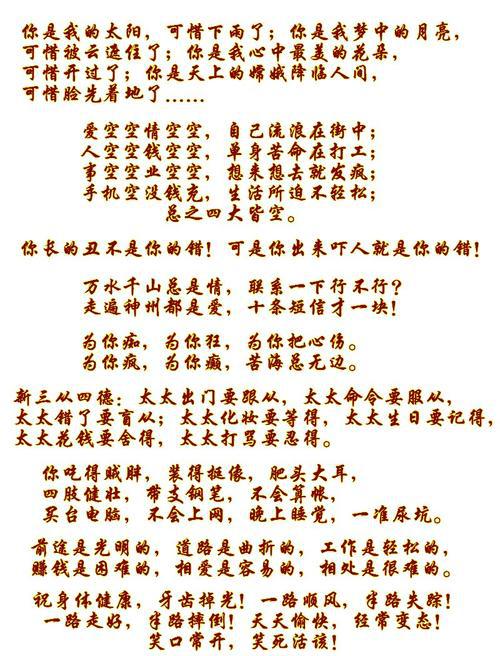 你是我的太阳，可惜下雨了；你是我梦中的月亮，
可惜被云遮住了；你是我心中最美的花朵，
可惜开过了；你是天上的嫦娥降临人间，
可惜脸先着地了……
爱空空情空空，自己流浪在街中；
人空空钱空空，单身苦命在打工；
事空空业空空，想来想去就发疯；
手机空没钱充，生活所迫不轻松；
总之四大皆空。
你长的丑不是你的错！可是你出来吓人就是你的错！
万水千山总是情，联系一下行不行？
走遍神州都是爱，十条短信才一块！
为你痴，为你狂，为你把心伤。
为你疯，为你癫，苦海总无边。
新三从四德：太太出门要跟从，太太命令要服从，
太太错了要盲从；太太化妆要等得，太太生日要记得，
太太花钱要舍得，太太打骂要忍得。
你吃得贼胖，装得挺像，肥头大耳，
四肢健壮，带支钢笔，不会算帐，
买台电脑，不会上网，晚上睡觉，一准尿坑。
前途是光明的，道路是曲折的，工作是轻松的，
赚钱是困难的，相爱是容易的，相处是很难的。
祝身体健康，牙齿掉光！一路顺风，半路失踪！
一路走好，半路摔倒！天天愉快，经常变态！
笑口常开，笑死活该！